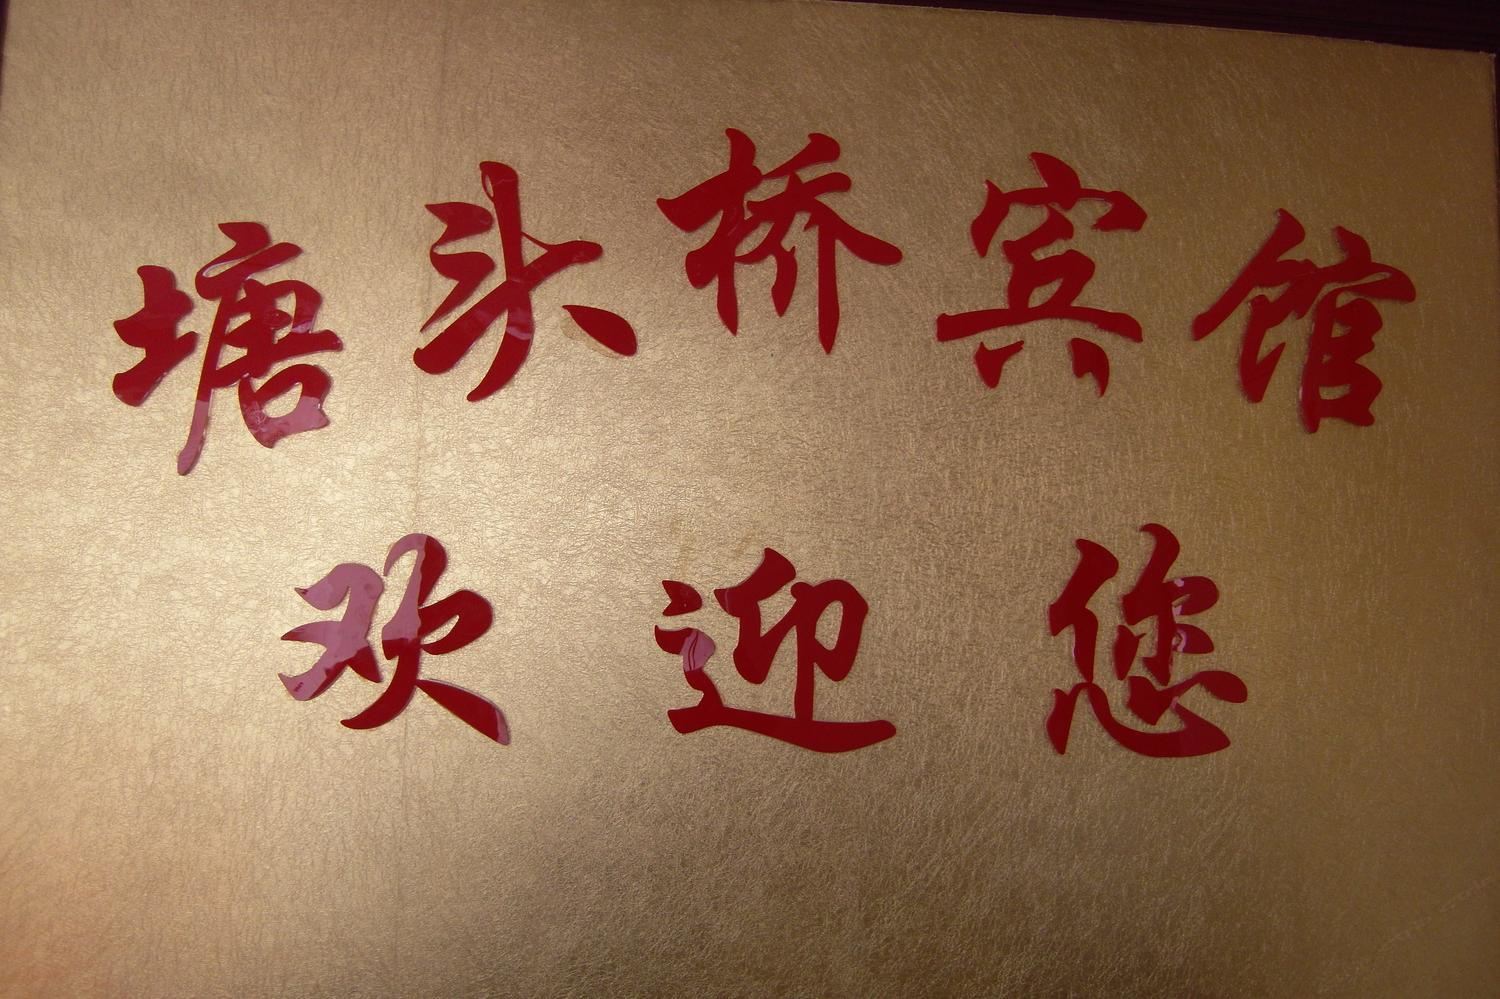 塘头桥宾馆
欢迎您